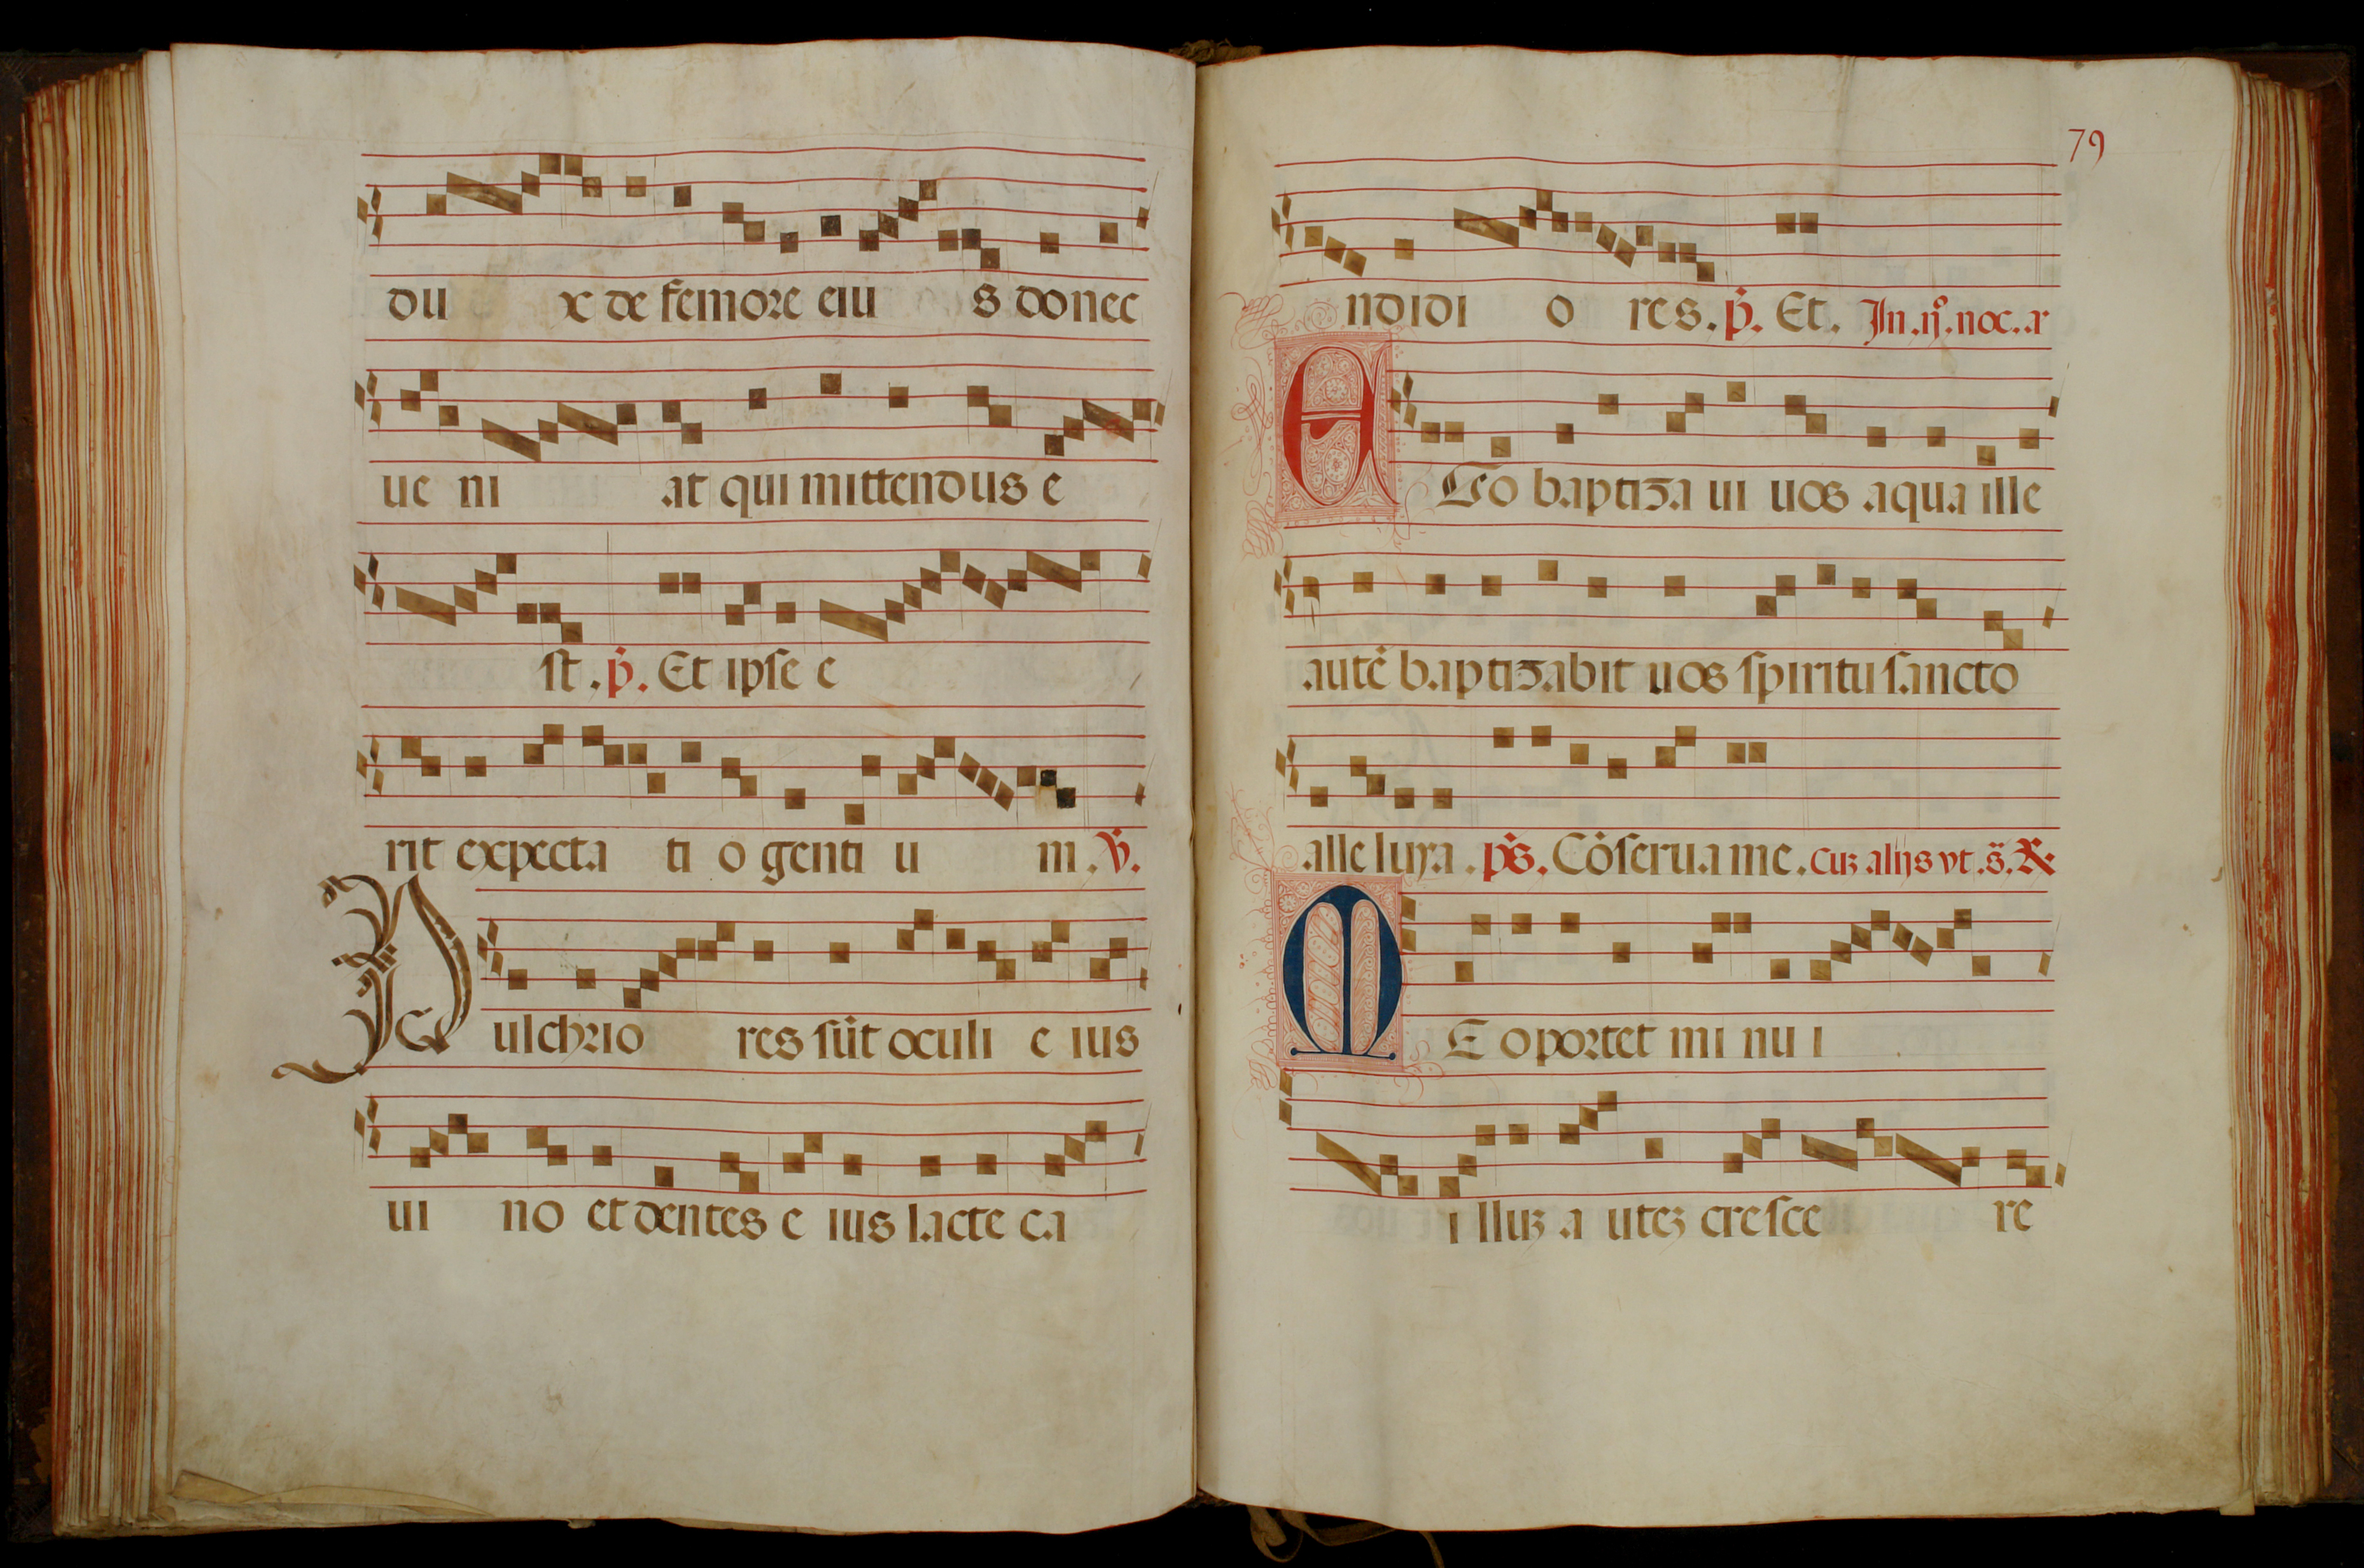 du x de femore eiu s donec
ue ni at qui mittendus e
st. p̄. Et ipse e
rit expecta ti o genti u m. v̄.
Pulchrio res sūt oculi e ius
ui no et dentes e ius lacte ca
79
ndidi o res. p̄. Et. In .ij°. noc. a
EGo baptiza ui uos aqua ille
autē baptizabit uos spiritu sancto
alleluya. ps. Cōserua me. cuz alijs vt. s̄. R.
ME oportet mi nu i
i lluz a utez cresce re